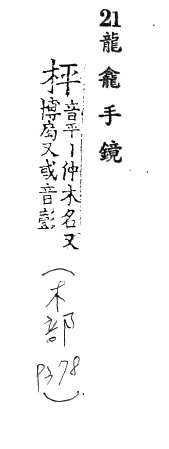 21 龍龕手鏡
枰 音平丨仲木名又
博局又或音彭
(木部
P378)